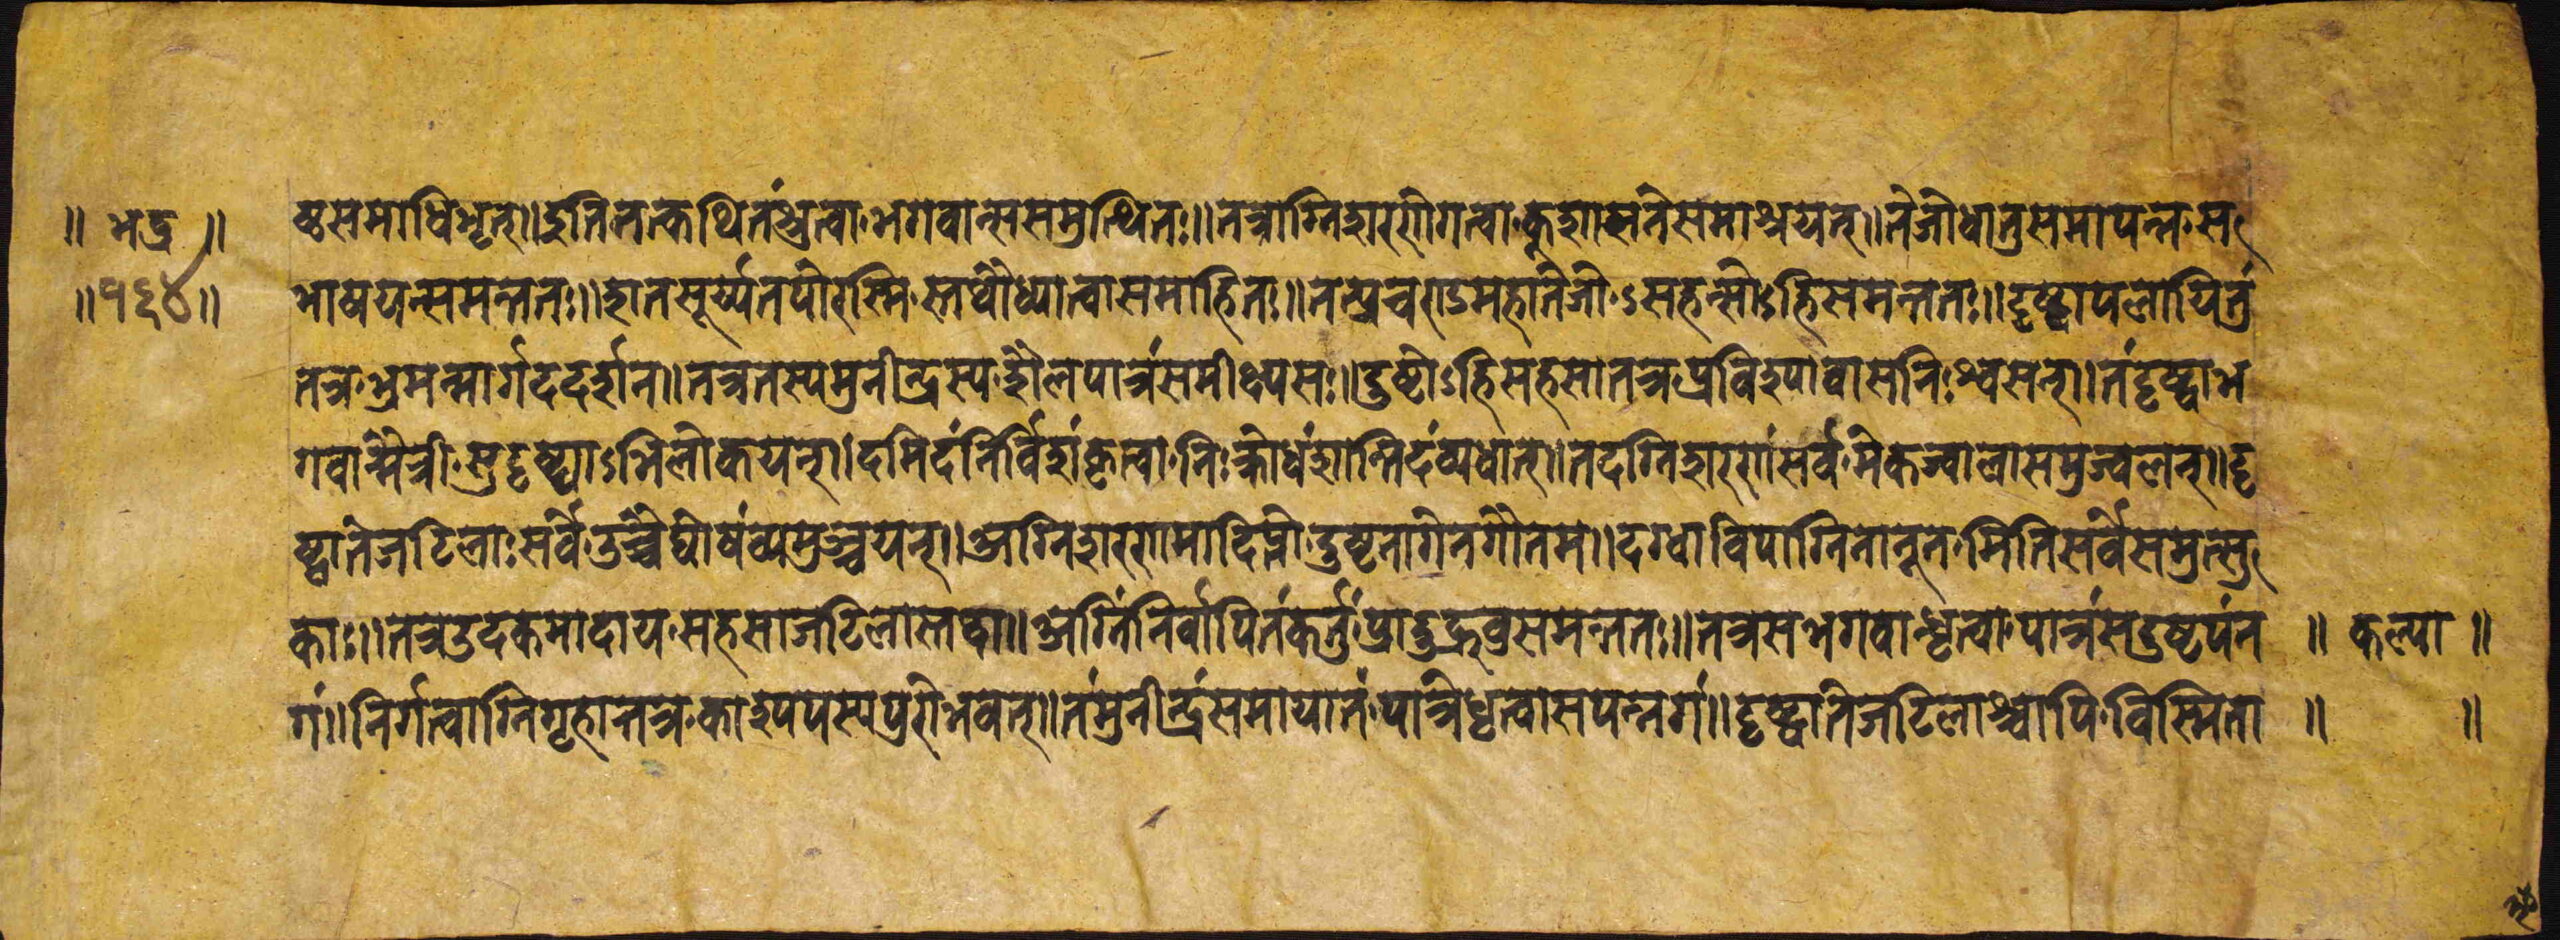 ॥ भद्र ॥ ष्ठसमाधिभृत्॥इतितत्कथितंश्रुत्वा भगवान्ससमुत्थितः॥तत्राग्निशरणेगत्वा कुशासनेसमाश्रयत्॥तेजोधातुसमापन्न स
॥१६४॥ भाषयन्समन्ततः॥शतसूर्य्यतपोरस्मि स्तथौध्यात्वासमाहितः॥तत्प्रचराऽमहातेजो ऽसहन्सोऽहिसमन्ततः॥दृष्ट्वापलायितुं
तत्र भ्रमन्मार्गंददर्शन॥तत्रतस्यमुनीन्द्रस्य शैलपात्रंसमीक्ष्यसः॥दुष्टोऽहिसहसातत्र प्रविश्यावासनिःश्वसन्॥तंदृष्ट्वाभ
गवान्मैत्री सुदृष्ट्याऽभिलोकयन्॥दमिदंनिर्विशंकृत्वा निःक्रोधंशान्तिदंव्यधात्॥तदग्निशरणंसर्व मेकज्वालासमुज्वलत्॥दृ
ष्ट्वातेजटिलाःसर्वे उच्चैर्घोषंव्यमुञ्चयन्॥अग्निशरणमादिप्तो दुष्टनागेनगौतम॥दग्धाविषाग्निनानून मितिसर्वेसमुत्सु
काः॥तत्रउदकमादाय सहसाजटिलास्तथा॥अग्निंनिर्वापितंकर्तुं प्रादुद्रुवुसमन्ततः॥तत्रसभगवान्धृत्वा पात्रंसदुष्टपंन ॥ कल्पा ॥
गं॥निर्गत्वाग्निगृहात्तत्र काश्यपस्यपुरोभवत्॥तंमुनीन्द्रंसमायातं पात्रेधृत्वासपन्नगं॥दृष्ट्वातेजटिलाश्चापि विस्मिता ॥ ॥